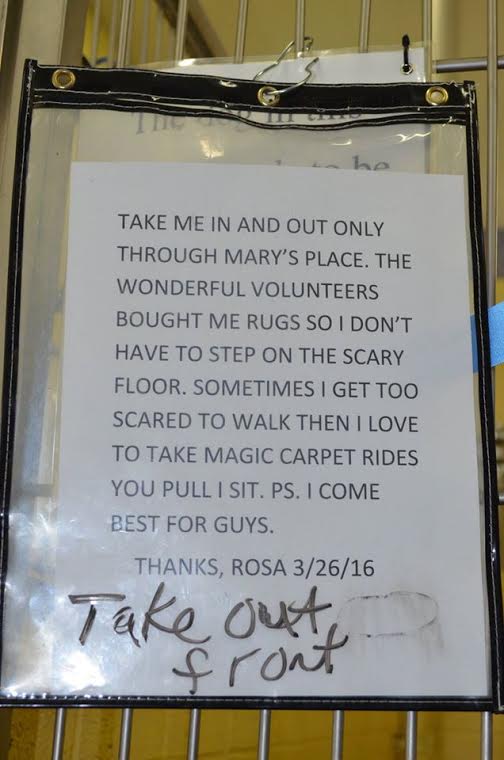 TAKE ME IN AND OUT ONLY
THROUGH MARY'S PLACE. THE
WONDERFUL VOLUNTEERS
BOUGHT ME RUGS SO I DON'T
HAVE TO STEP ON THE SCARY
FLOOR. SOMETIMES I GET TOO
SCARED TO WALK THEN I LOVE
TO TAKE MAGIC CARPET RIDES
YOU PULL I SIT. PS. I COME
BEST FOR GUYS.
THANKS, ROSA 3/26/16
Take out
front